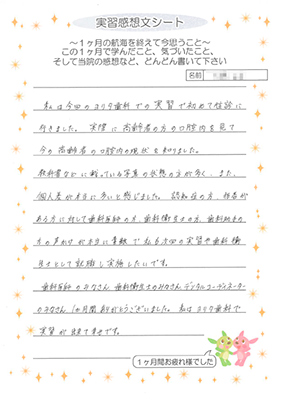 実習感想文シート
～1ヶ月の航海を終えて今思うこと～
この1ヶ月で学んだこと、気づいたこと、
そして当院の感想など、どんどん書いて下さい
名前
私は今回のヨリタ歯科での実習で初めて往診に
行きました。実際に高齢者の方の口腔内を見て
今の高齢者の口腔内の現状を知りました。
教科書などに載っている写真の状態の方が多く、また、
個人差が本当に多いと感じました。認知症の方、
がある方に対して歯科医師の方、歯科衛生士の方、歯科助手の
方の声かけが本当に素敵で私も次回の実習や歯科衛
生士として就職し実施したいです。
歯科医師のみなさん 歯科衛生士のみなさん デンタルコーディネーター
のみなさん 1ヶ月間ありがとうございました。私はヨリタ歯科で
実習が出来て幸せです。
1ヶ月間お疲れ様でした